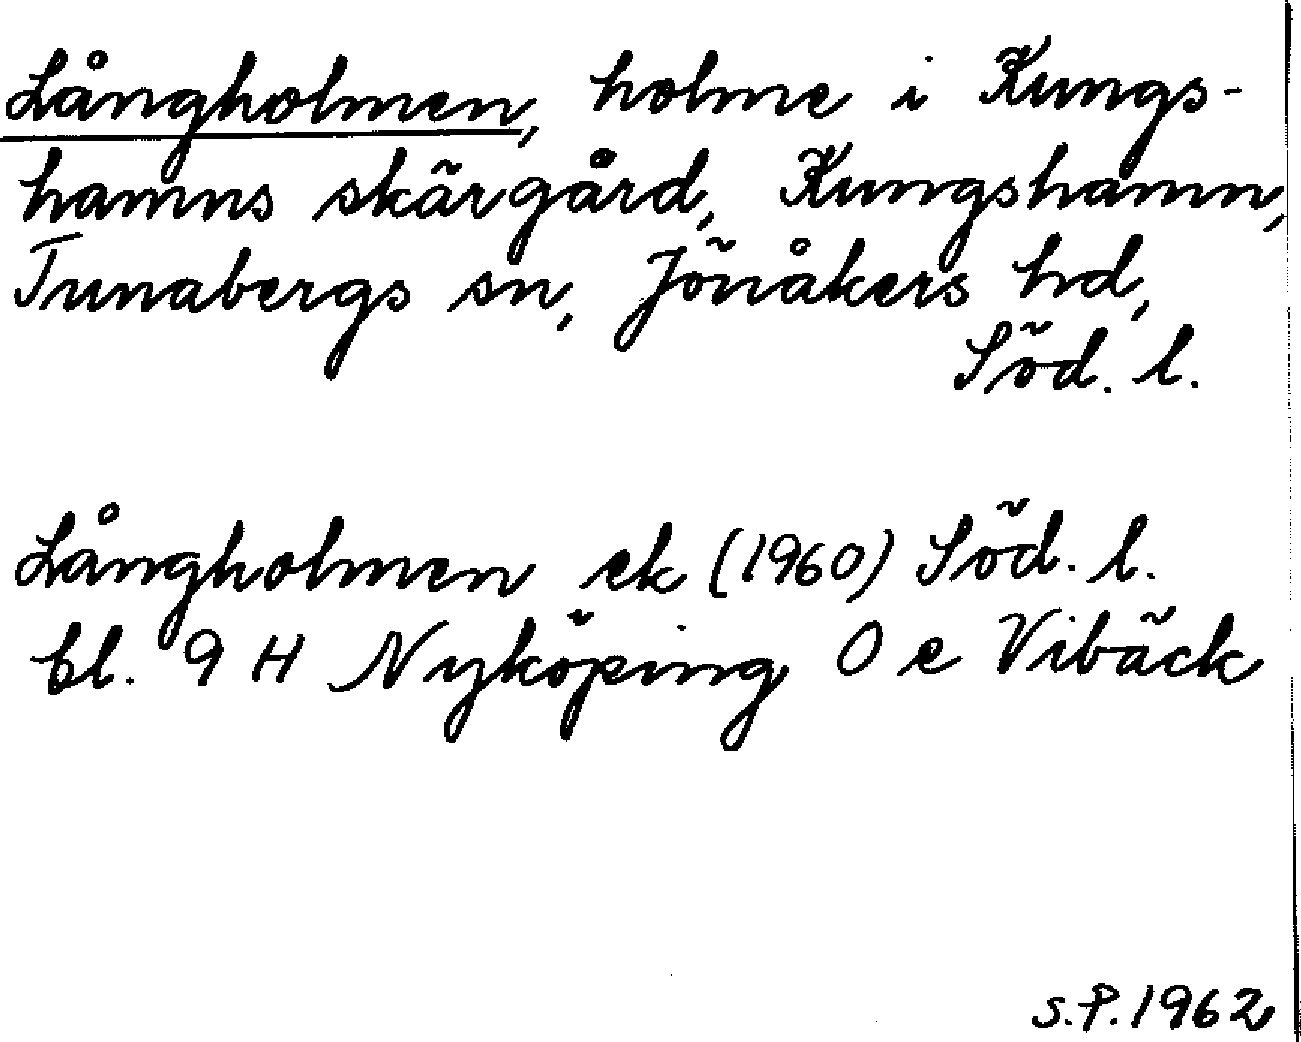 Långholmen, holme i Kungs-
hamns skärgård, Kungshamn,
Tunabergs sn, Jönåkers hd,
Söd. l.
Långholmen ek (1960) Söd. l.
bl. 9 H Nyköping O e Vibäck
S.P. 1962